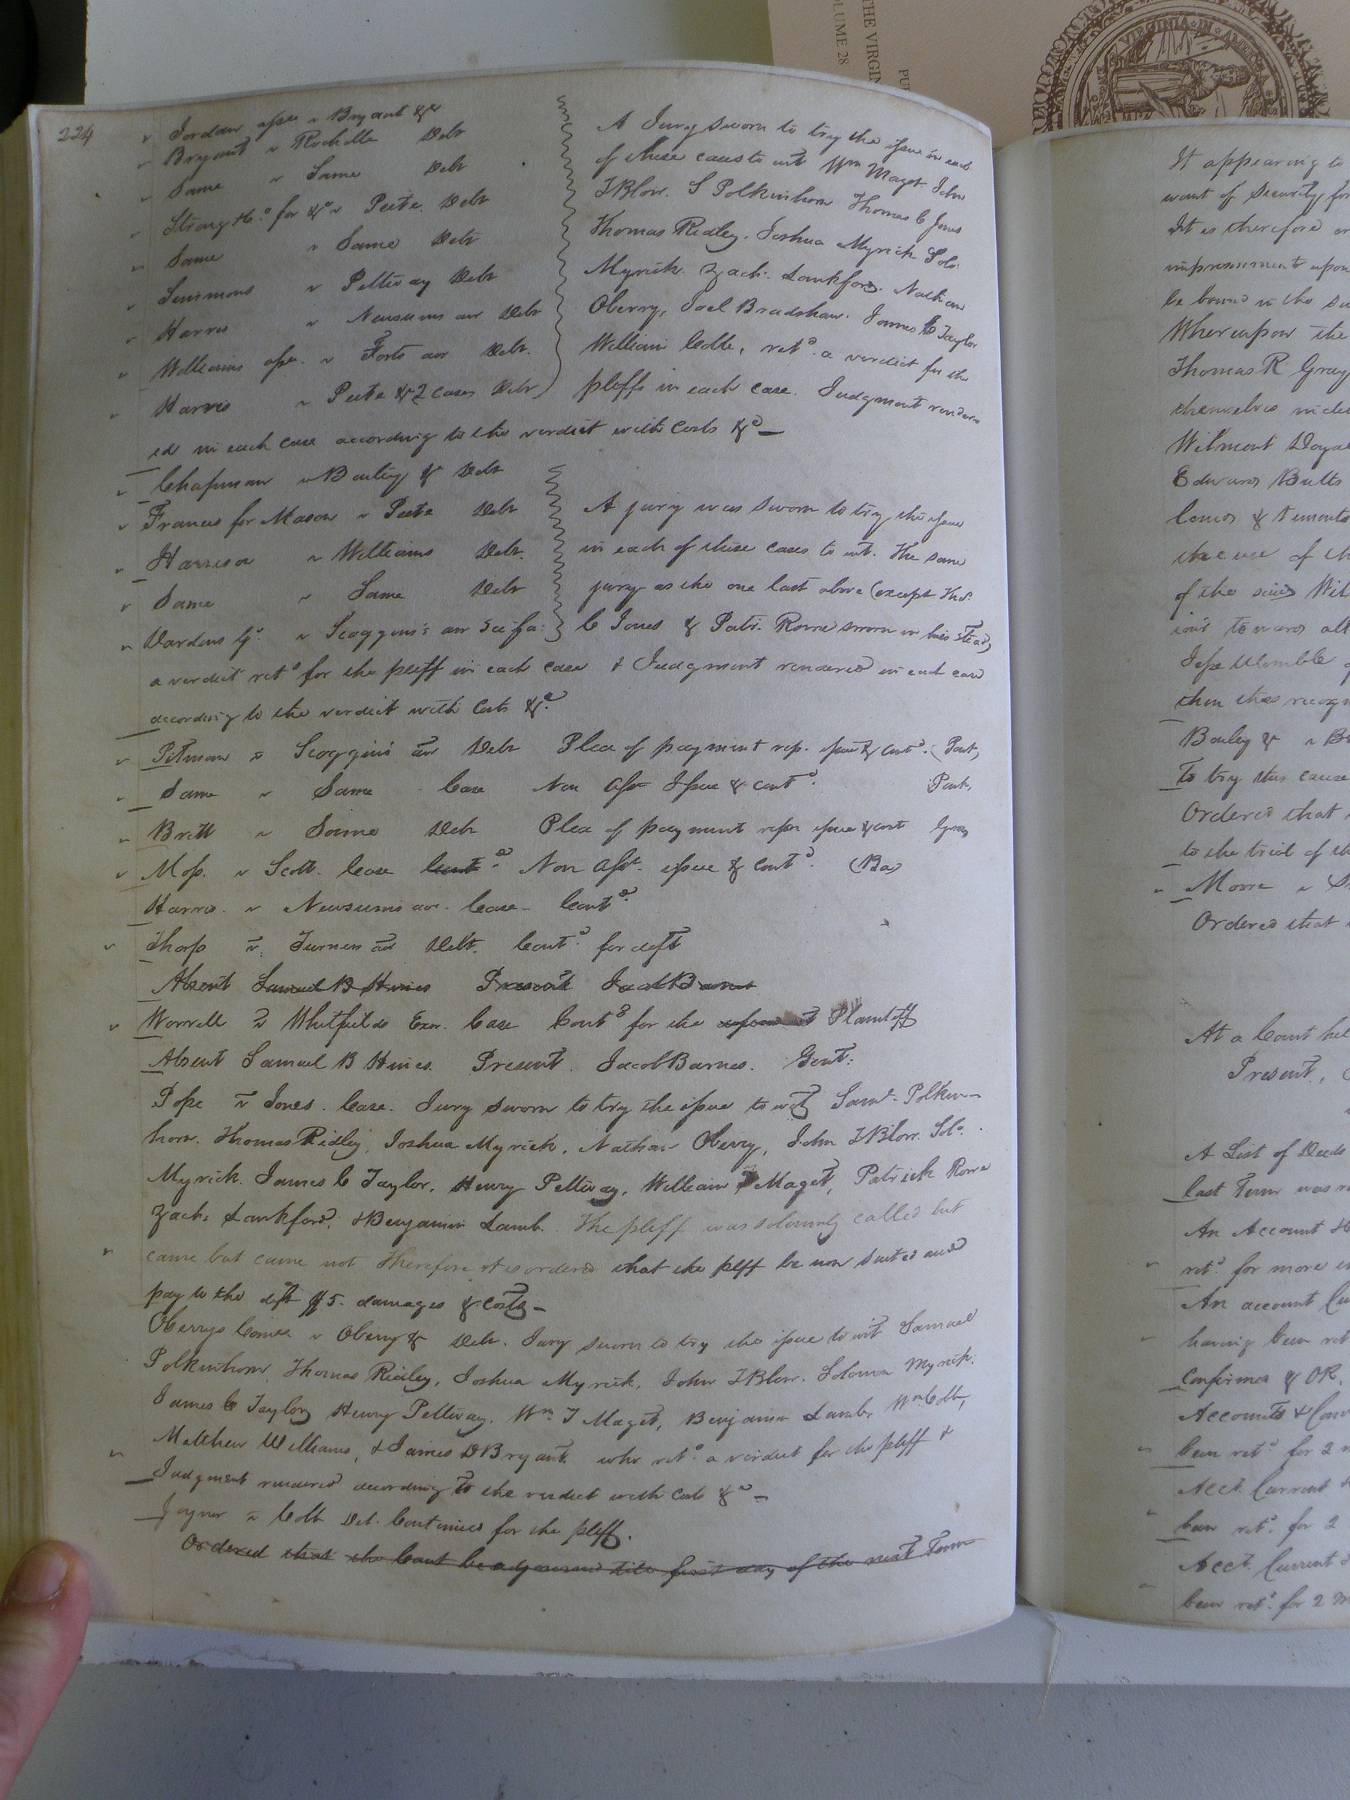 224
Jordan assee v Bryant &c
Bryant v Rochelle Debt
Same v Same Debt
Strong &Co. for &c v Peete. Debt
Same v Same Debt
Simmons v Pettway Debt
Harris v Newsums adr Debt
Williams assee. v Forts adr Debt.
Harris v Peete &c 2 cases Debt
A Jury sworn to try the issue in each
of these cases to wit Wm Maget John
T Blow. S Polkinhorn Thomas C Jones
Thomas Ridley. Joshua Myrick Solo.
Myrick. Zach: Lankford. Nathan
Oberry, Joel Bradshaw. James C Taylor
William Cobb, retd. a verdict for the
pleffs in each case. Judgment render
ed in each case according to the verdict with Costs &c—
Chapman v Bailey & Debt
Frances for Mason v Peete Debt
Harrison v Williams Debt.
Same v Same Debt
Vardens Gn. v Scoggins's adr Sci fa:
A jury was sworn to try the issue
in each of these cases to wit. The same
jury as the one last above (except Thos.
C Jones & Patr. Rowe sworn in his stead,
a verdict retd for the pleff in each case & Judgment rendered in each case
according to the verdict with Costs &c.
Pitman v Scoggins adr Debt Plea of payment rep. issue & contd. (Park)
Same v Same Case Non asst Issue & contd. Park,
Britt v Same Debt Plea of payment repn issue & cont Gray
Moss. v Scott. Case contd. Non asst. issue & contd. (Ba)
Harris. v Newsums adr. Case. Contd.
Tharp v. Turners adr Debt. Contd. for deft
Absent Samuel B Hines Present Jacob Barnes
Worrell v Whitfields Exor. Case Contd for the Plaintiff
Absent Samuel B Hines. Present. Jacob Barnes. Gent:
Pope v Jones. Case. Jury sworn to try the issue to wit Saml. Polkin-
horn. Thomas Ridley, Joshua Myrick, Nathan Oberry, John T Blow. Solo.
Myrick. James C Taylor, Henry Pettway, William T Maget, Patrick Rowe
Zach: Lankford, & Benjamin Lamb. The pleff was solemnly called but
came but came not Therefore it is ordered that the plff be non suited and
pay to the deft $5. damages & costs—
Oberrys Comee v Oberry & Debt. Jury sworn to try the issue to wit Samuel
Polkinhorn, Thomas Ridley, Joshua Myrick, John T Blow. Solomon Myrick.
James C Taylor, Henry Pettway. Wm T Maget, Benjamin Lamb. Wm Cobb,
Matthew Williams, & James D Bryant. who retd. a verdict for the pleff &
Judgment rendered according to the verdict with Costs &c—
Joyner v Cobb Debt. Continued for the pleff.
Ordered that the Court be adjourned till first day of the next Term
It appearing to
want of Security for
It is therefore or
imprisonment upon
be bound in the su
Whereupon the
Thomas R Gray
themselves inde
Edwards Butts
the use of th
of the said Wil
towards all
Jesse Womble
then this recogn
Bailey & v Br
To try this cause
Ordered that
to the trial of th
Moore v S
Ordered that
At a Court hel
Present,
A List of Deeds
last Term was r
An Account
retd. for more
An account Cu
having been ret
Confirmed & OR.
Accounts & Cur
been retd. for 2 m
Acct. Current
been retd. for 2
Acct. Current
been retd. for 2 m
THE VIRGIN
OLUME 28
PU
VIRGINIA IN